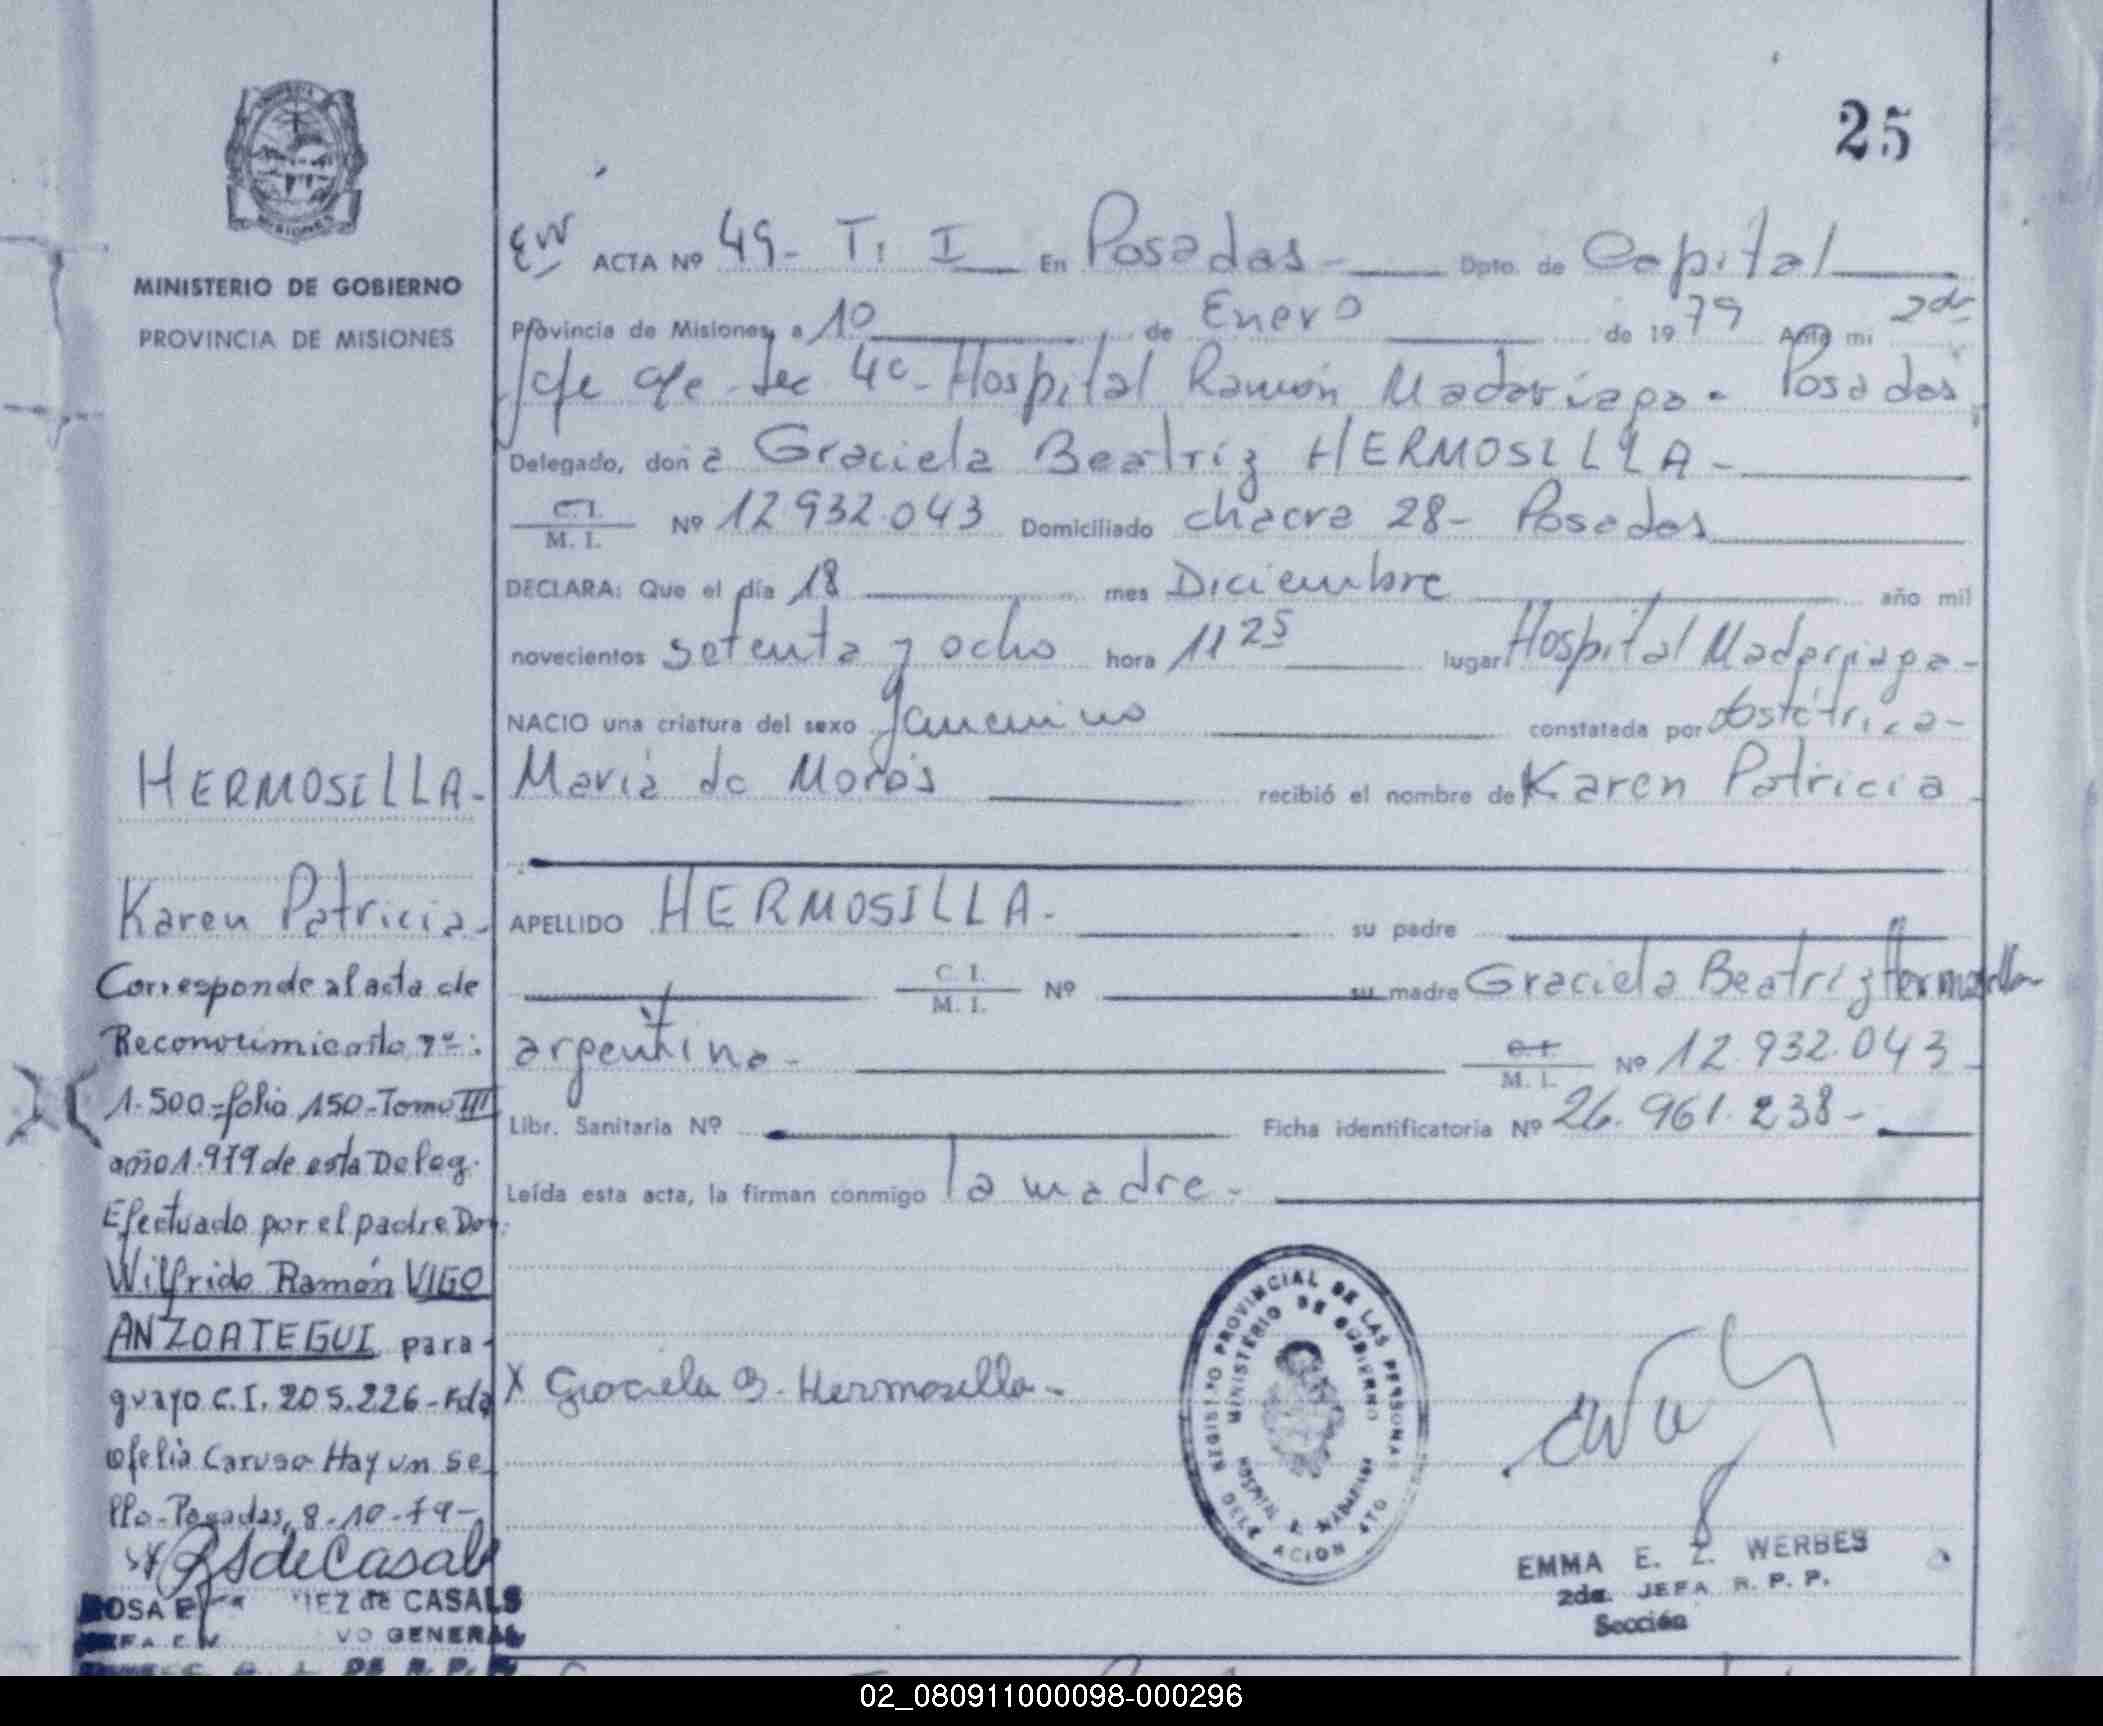 25
MINISTERIO DE GOBIERNO
PROVINCIA DE MISIONES
EW ACTA Nº 49- T. I En Posadas- Dpto. de Capital
Provincia de Misiones, a 10 de Enero de 1979 Ante mi 2da
Jefe de Sec 4º- Hospital Ramón Madariaga- Posadas
Delegado, doña Graciela Beatriz HERMOSILLA-
C. I. / M. I. Nº 12.932.043 Domiciliado chacra 28- Posadas
DECLARA: Que el día 18 mes Diciembre año mil
novecientos setenta y ocho hora 11 25 lugar Hospital Madariaga-
NACIO una criatura del sexo femenino constatada por obstétrica-
María de Morás recibió el nombre de Karen Patricia
APELLIDO HERMOSILLA- su padre
C. I. / M. I. Nº su madre Graciela Beatriz Hermosilla
argentina- C. I. / M. I. Nº 12.932.043
Libr. Sanitaria Nº Ficha identificatoria Nº 26.961.238-
Leída esta acta, la firman conmigo la madre-
X Graciela B. Hermosilla-
REGISTRO PROVINCIAL DE LAS PERSONAS
MINISTERIO DE GOBIERNO
HOSPITAL R. MADARIAGA
EMMA E. Z. WERBES
2da. JEFA R. P. P.
Sección
HERMOSILLA-
Karen Patricia-
Corresponde al acta de
Reconocimiento nº:
1.500-folio 150-Tomo III
año 1.979 de esta Deleg.
Efectuado por el padre Don:
Wilfrido Ramón VIGO
ANZOATEGUI para-
guayo C.I. 205.226-Fda
ofelia Caruso Hay un se
llo-Posadas, 8-10-79-
RS de Casals
ROSA de CASALS
GENERAL
DE R. P. P.
02_080911000098-000296